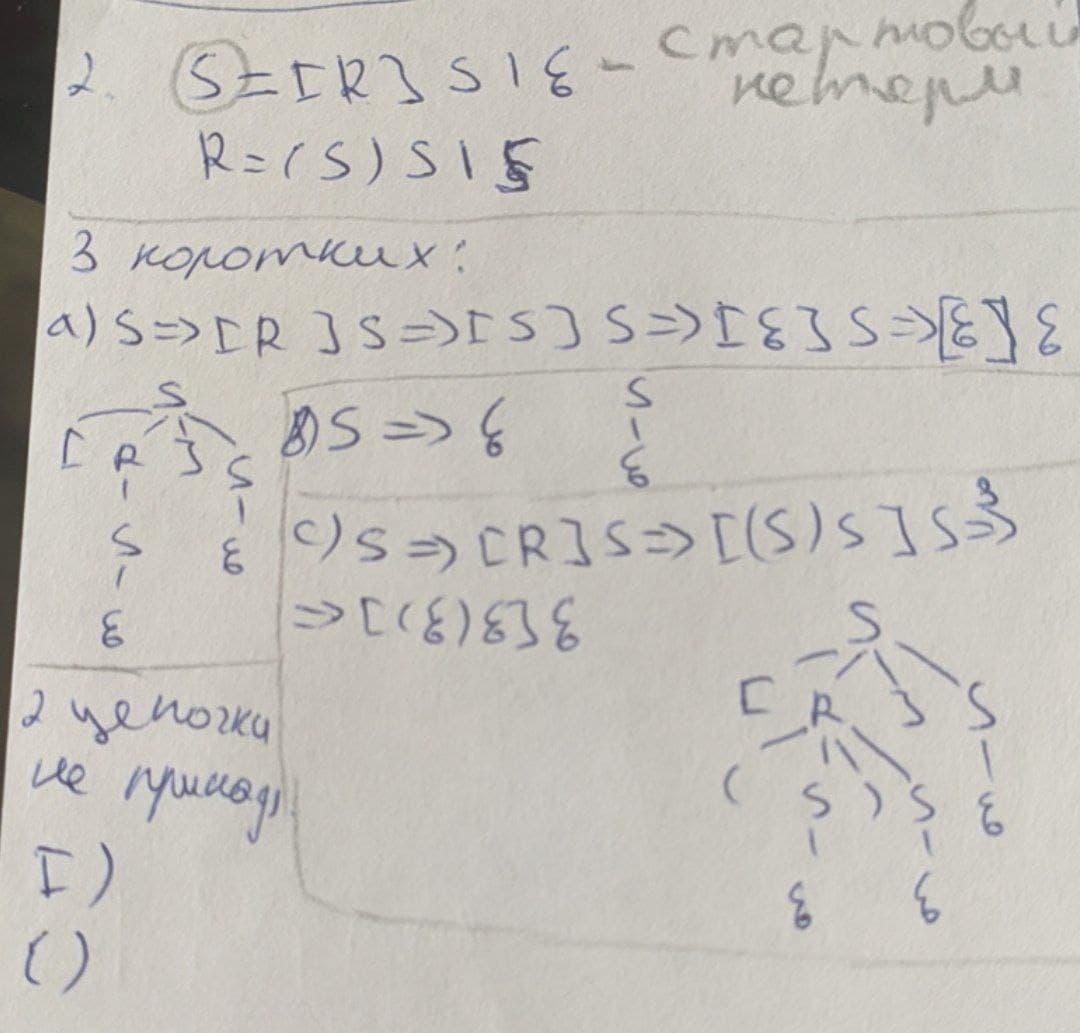 2. S=[R]S|ε - стартовый
нетерм
R=(S)S|S
3 коротких:
a) S=>[R]S=>[S]S=>[ε]S=>[ε]ε
S
[ R ] S
S ε
ε
б) S=>ε
S
ε
c) S=>[R]S=>[(S)S]S=>³
=>[(ε)ε]ε
S
[ R ] S
( S ) S ε
ε ε
2 цепочки
не принадл
[)
()